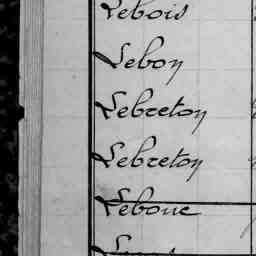 Lebois
Lebon
Lebreton
Lebreton
Lebouc